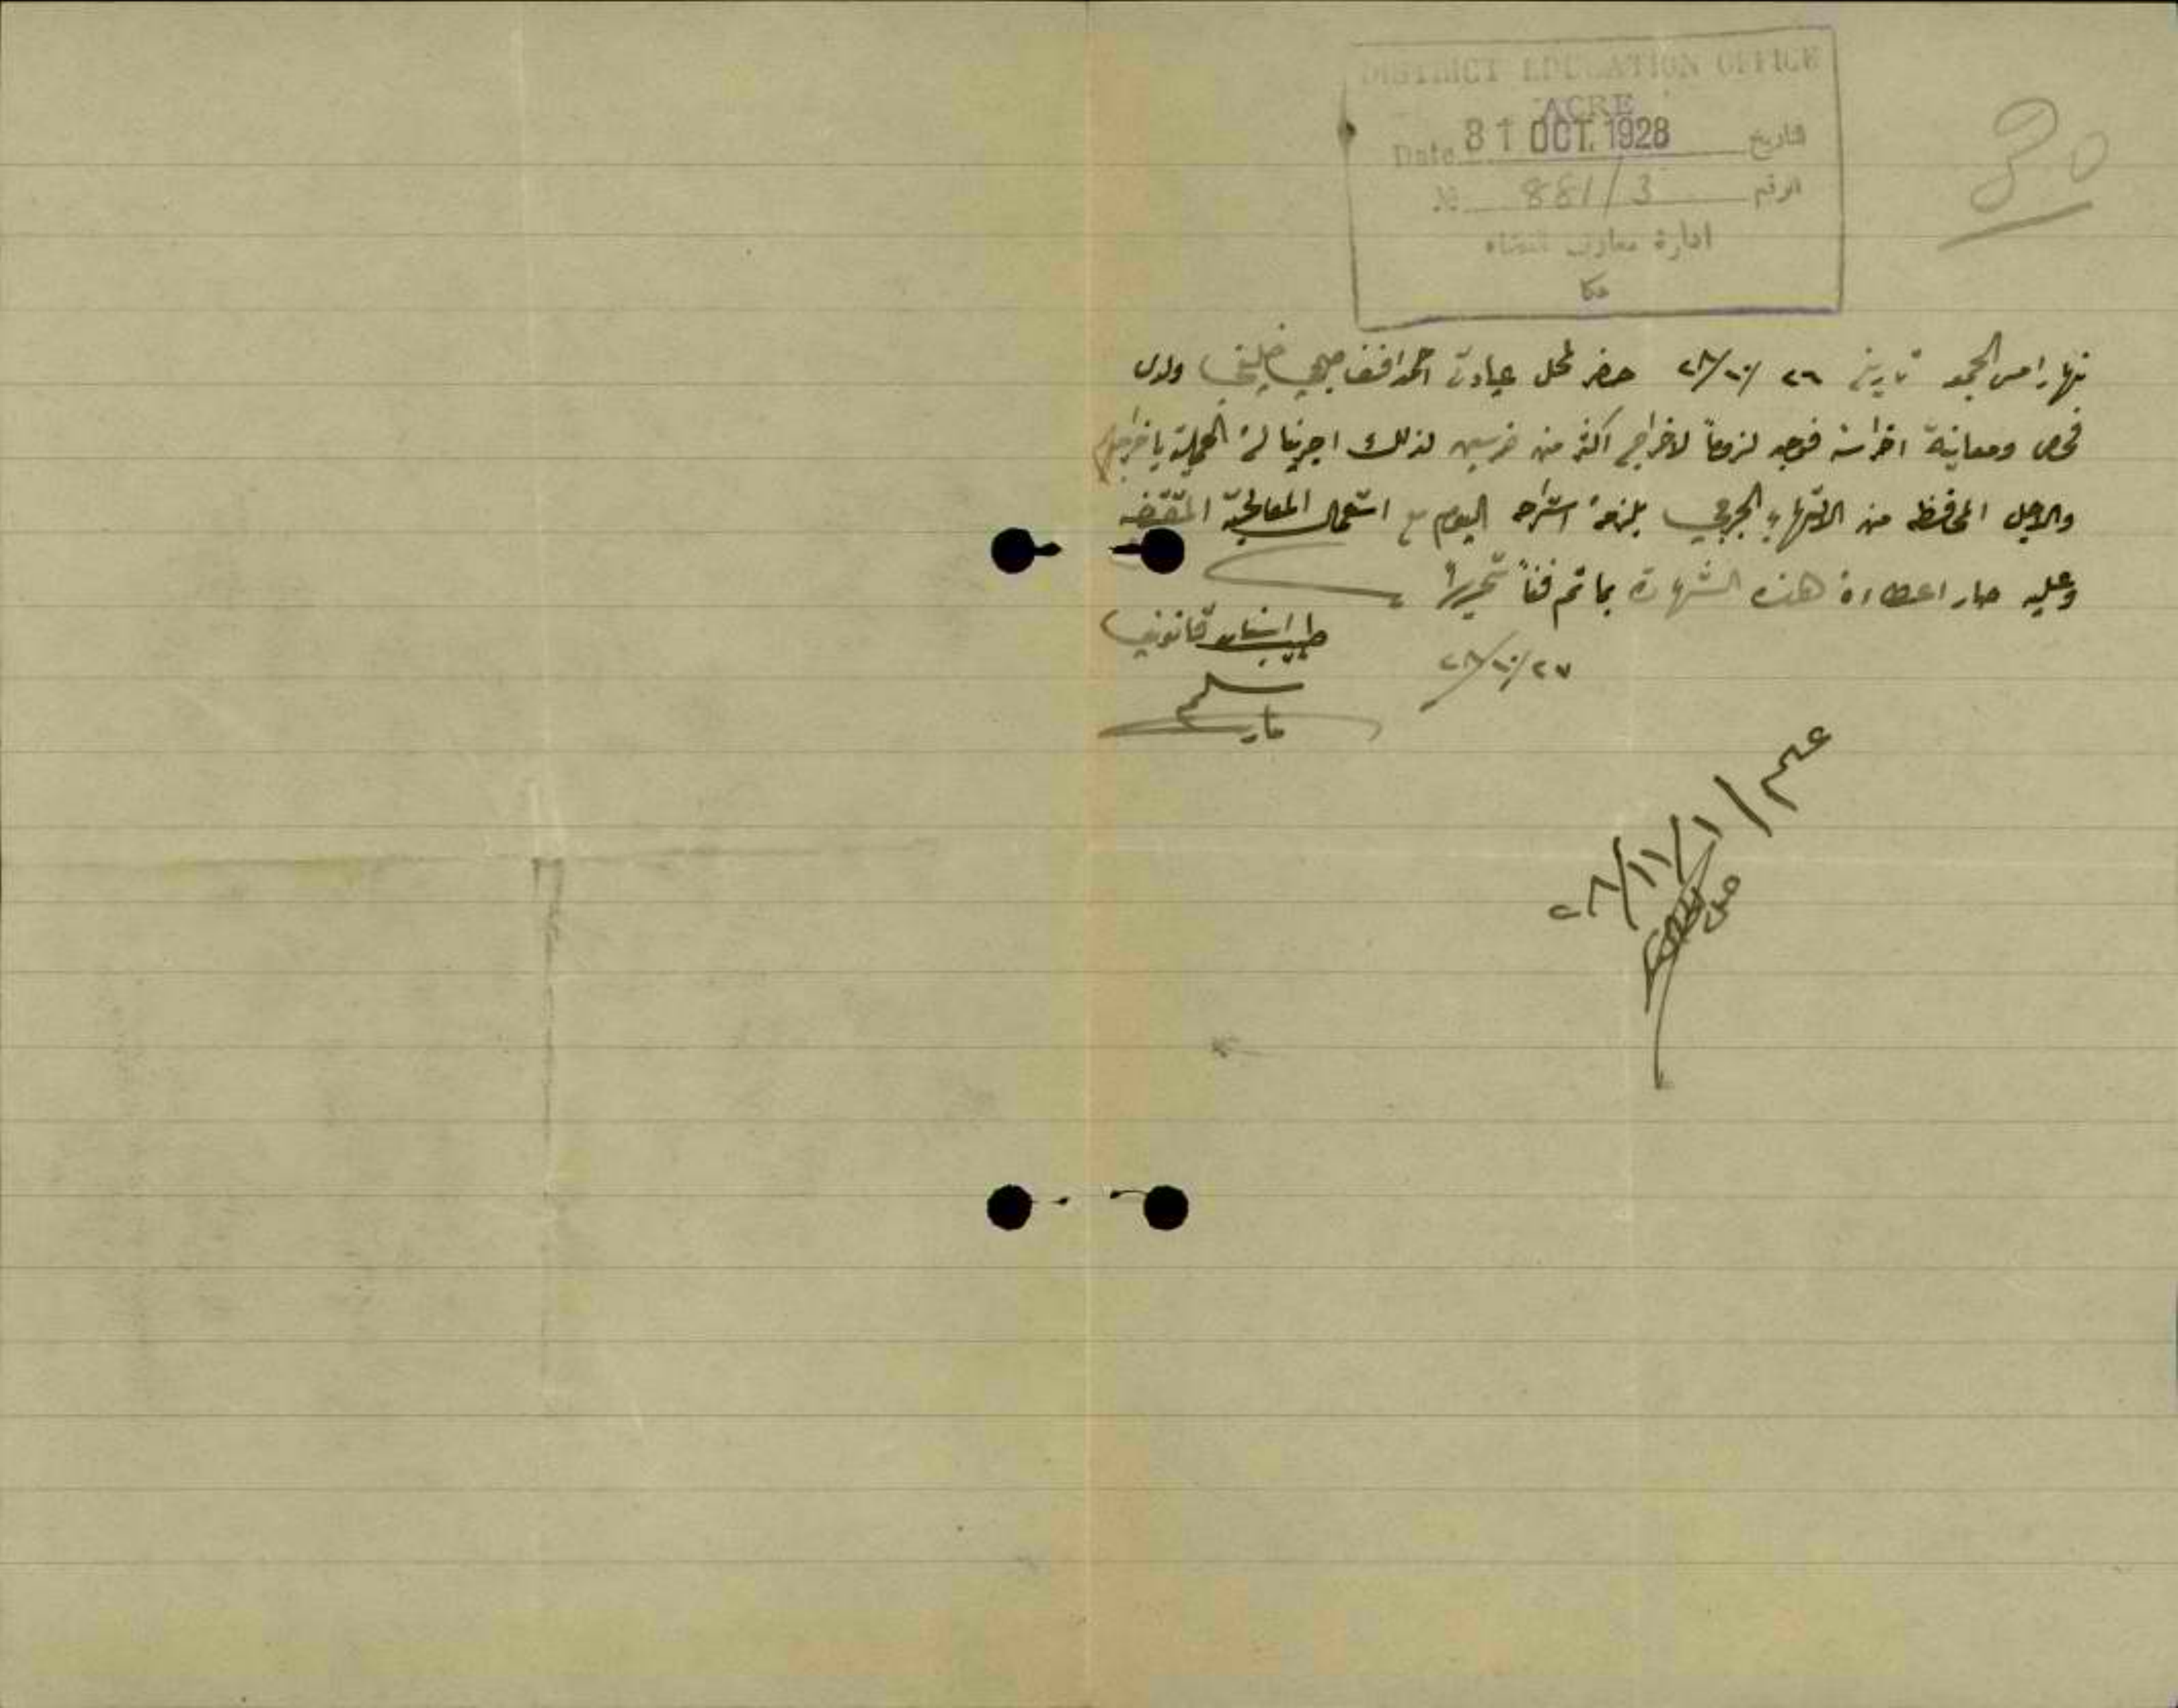 DISTRICT EDUCATION OFFICE
ACRE
Date 31 OCT. 1928 تاريخ
№ 881/3 الرقم
ادارة معارف القضاء
عكا
30
نهار امس الجمعه تاريخ ٢٦/١٠/٢٨ حضر لمحل عيادتي احمد افندي صبحي خليفي ولدى
فحص ومعاينة اضراسه فوجد لزوماً لاخراج اكثر من ضرسين لذلك اجرينا له العملية باخراجهم
ولاجل المحافظه من الالتهاب الجرحي يلزمه استراحه اليوم مع استعمال المعالجة المقتضيه
وعليه صار اعطاءه هذه الشهادة بما تم فناً تحريراً
٢٧/١٠/٢٨
طبيب اسنان قانوني
سليم
علم
٢٨/١١/١